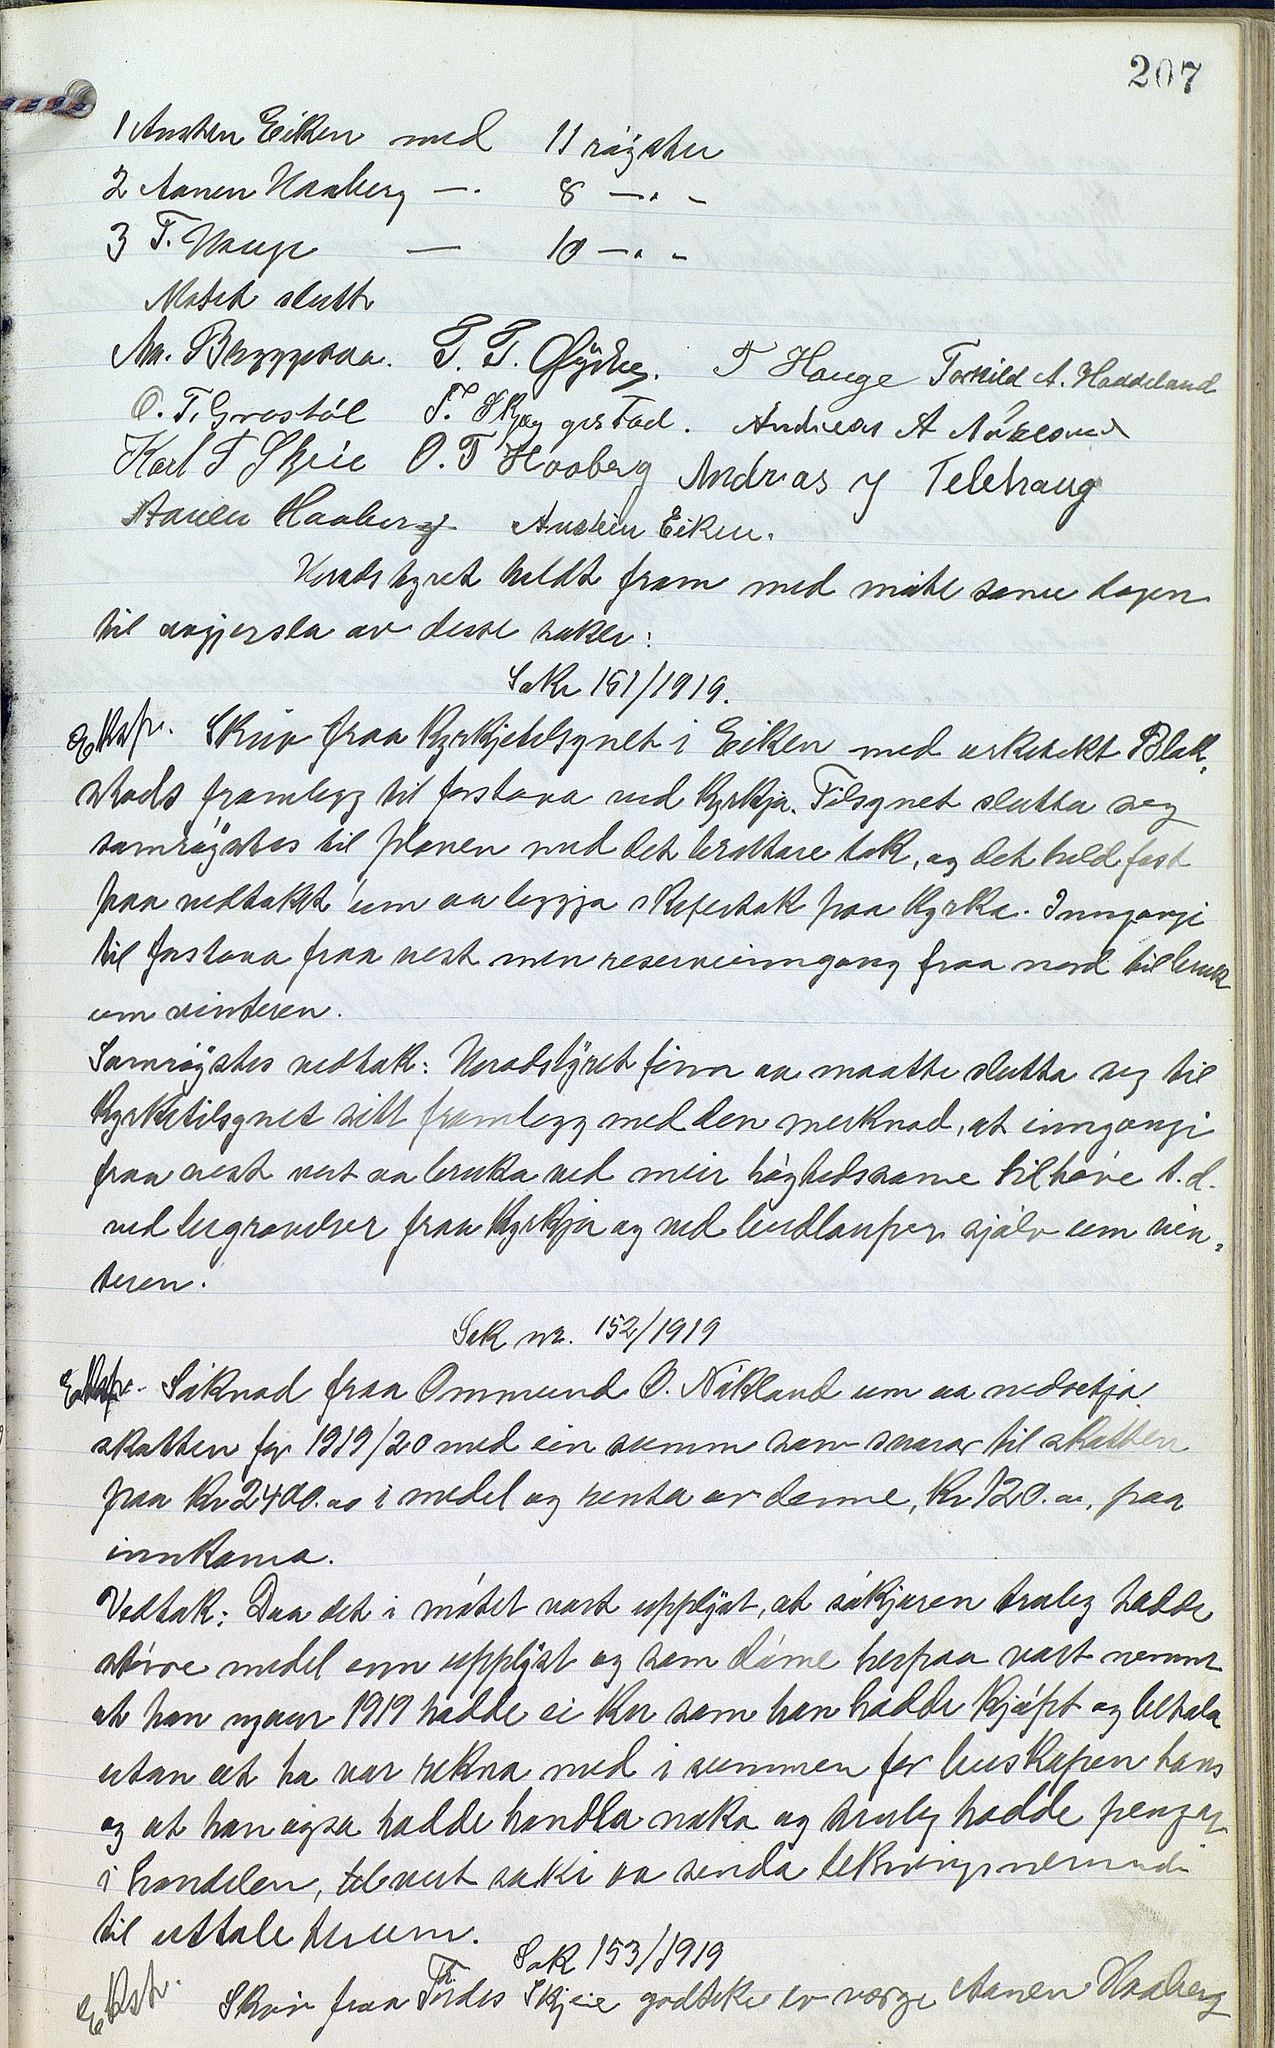 207
1 Austen Eiken med 11 røyster
2 Aanen Haaberg —. 8 —. -
3 T. Hauge — 10 —. -
Møtet slutt
Aa. Bryggesaa. T. T. Øydne. T Hauge Torkild A. Haddeland
O. T. Grostøl T. Skjeggestad. Andreas A Nøkland
Karl T Skeie O. T Haaberg Andreas Telehaug
Aanen Haaberg Austen Eiken.
Heradstyret heldt fram med møte same dagen
til avgjersla av desse saker:
Sak 151/1919.
Ekspr. Skriv fraa kyrkjetilsynet i Eiken med arkitekt Blak-
stads framlegg til forstova ved kyrkja. Tilsynet slutta seg
samrøystes til planen med det brattare tak, og det held fast
paa vedtaket um aa leggja skifertak paa kyrka. Inngangi
til forstova fraa vest men reserveinngang fraa nord til bruk
um vinteren.
Samrøystes vedtak: Heradstyret finn aa maatte slutta seg til
kyrketilsynet sitt framlegg med den merknad, at inngangi
fraa vest vert aa bruka ved meir høghedsame tilhøve t. d.
ved begravelser fraa kyrkja og ved brudlauper sjølv um vin-
teren.
Sak nr. 152/1919
Ekspr. Søknad fraa Ommund O. Nøkland um aa nedsetja
skatten for 1919/20 med ein summ som svarar til skatten
paa kr 2400.00 i medel og renta av denne, kr 120.00, paa
innkoma.
Vedtak: Daa det i møtet vart upplyst, at søkjaren truleg hadde
større medel enn upplyst og som døme herpaa vart nemnt
at han nyaar 1919 hadde ei ku som han hadde kjøpt og betala
utan at ho var rekna med i summen for buskapen hans
og at han ogsa hadde handla noko og truleg hadde pengar
i handelen, vert saki aa senda likningsnemndi
til uttale herum.
Sak 153/1919
Ekspr. Skriv fraa Tordis Skjeie godteke ev verge Aanen Haaberg